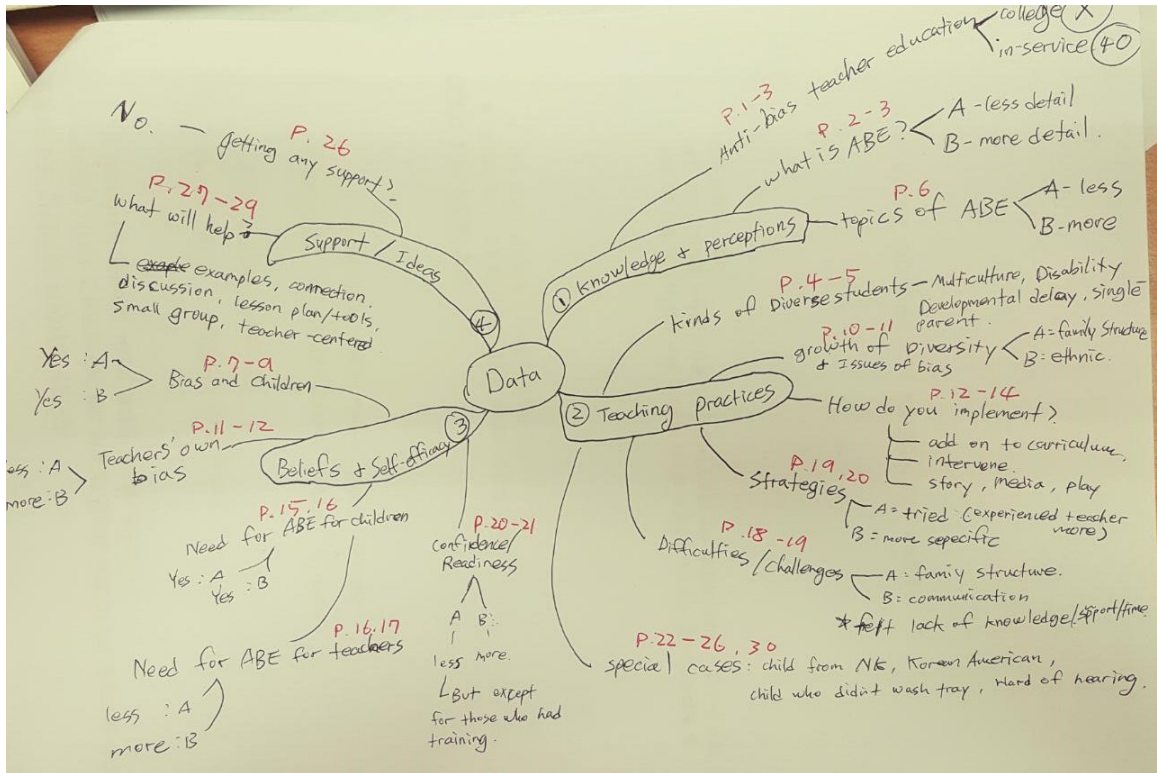 Data
① Knowledge & perceptions
P. 1-3
Anti-bias teacher education
college X
in-service 40
P. 2-3
what is ABE?
A - less detail
B - more detail.
P. 6
topics of ABE
A - less
B - more
② Teaching practices
P. 4-5
kinds of Diverse students - Multiculture, Disability
Developmental delay, single
parent.
P. 10-11
growth of Diversity
& Issues of bias
A = family structure
B = ethnic.
P. 12-14
How do you implement?
add on to curriculum,
intervene.
story, media, play
P. 19, 20
Strategies
A = tried (experienced teacher
more)
B = more sepecific
P. 18-19
Difficulties/challenges
A = family structure.
B = communication
* felt lack of knowledge/spport/time
P. 22-26, 30
special cases: child from NK, Korean American,
child who didn't wash tray, Hard of hearing.
③
Beliefs & Self-efficacy
P. 7-9
Bias and children
Yes : A
Yes : B
P. 11-12
Teachers' own
bias
less : A
more : B
P. 15, 16
Need for ABE for children
Yes : A
Yes : B
P. 16, 17
Need for ABE for teachers
less : A
more : B
P. 20-21
Confidence/
Readiness
A B
less more.
But except
for those who had
training.
④
Support / Ideas
P. 26
getting any support?
No.
P. 27-29
what will help?
examples, connection,
discussion, lesson plan/tools,
small group, teacher-centered